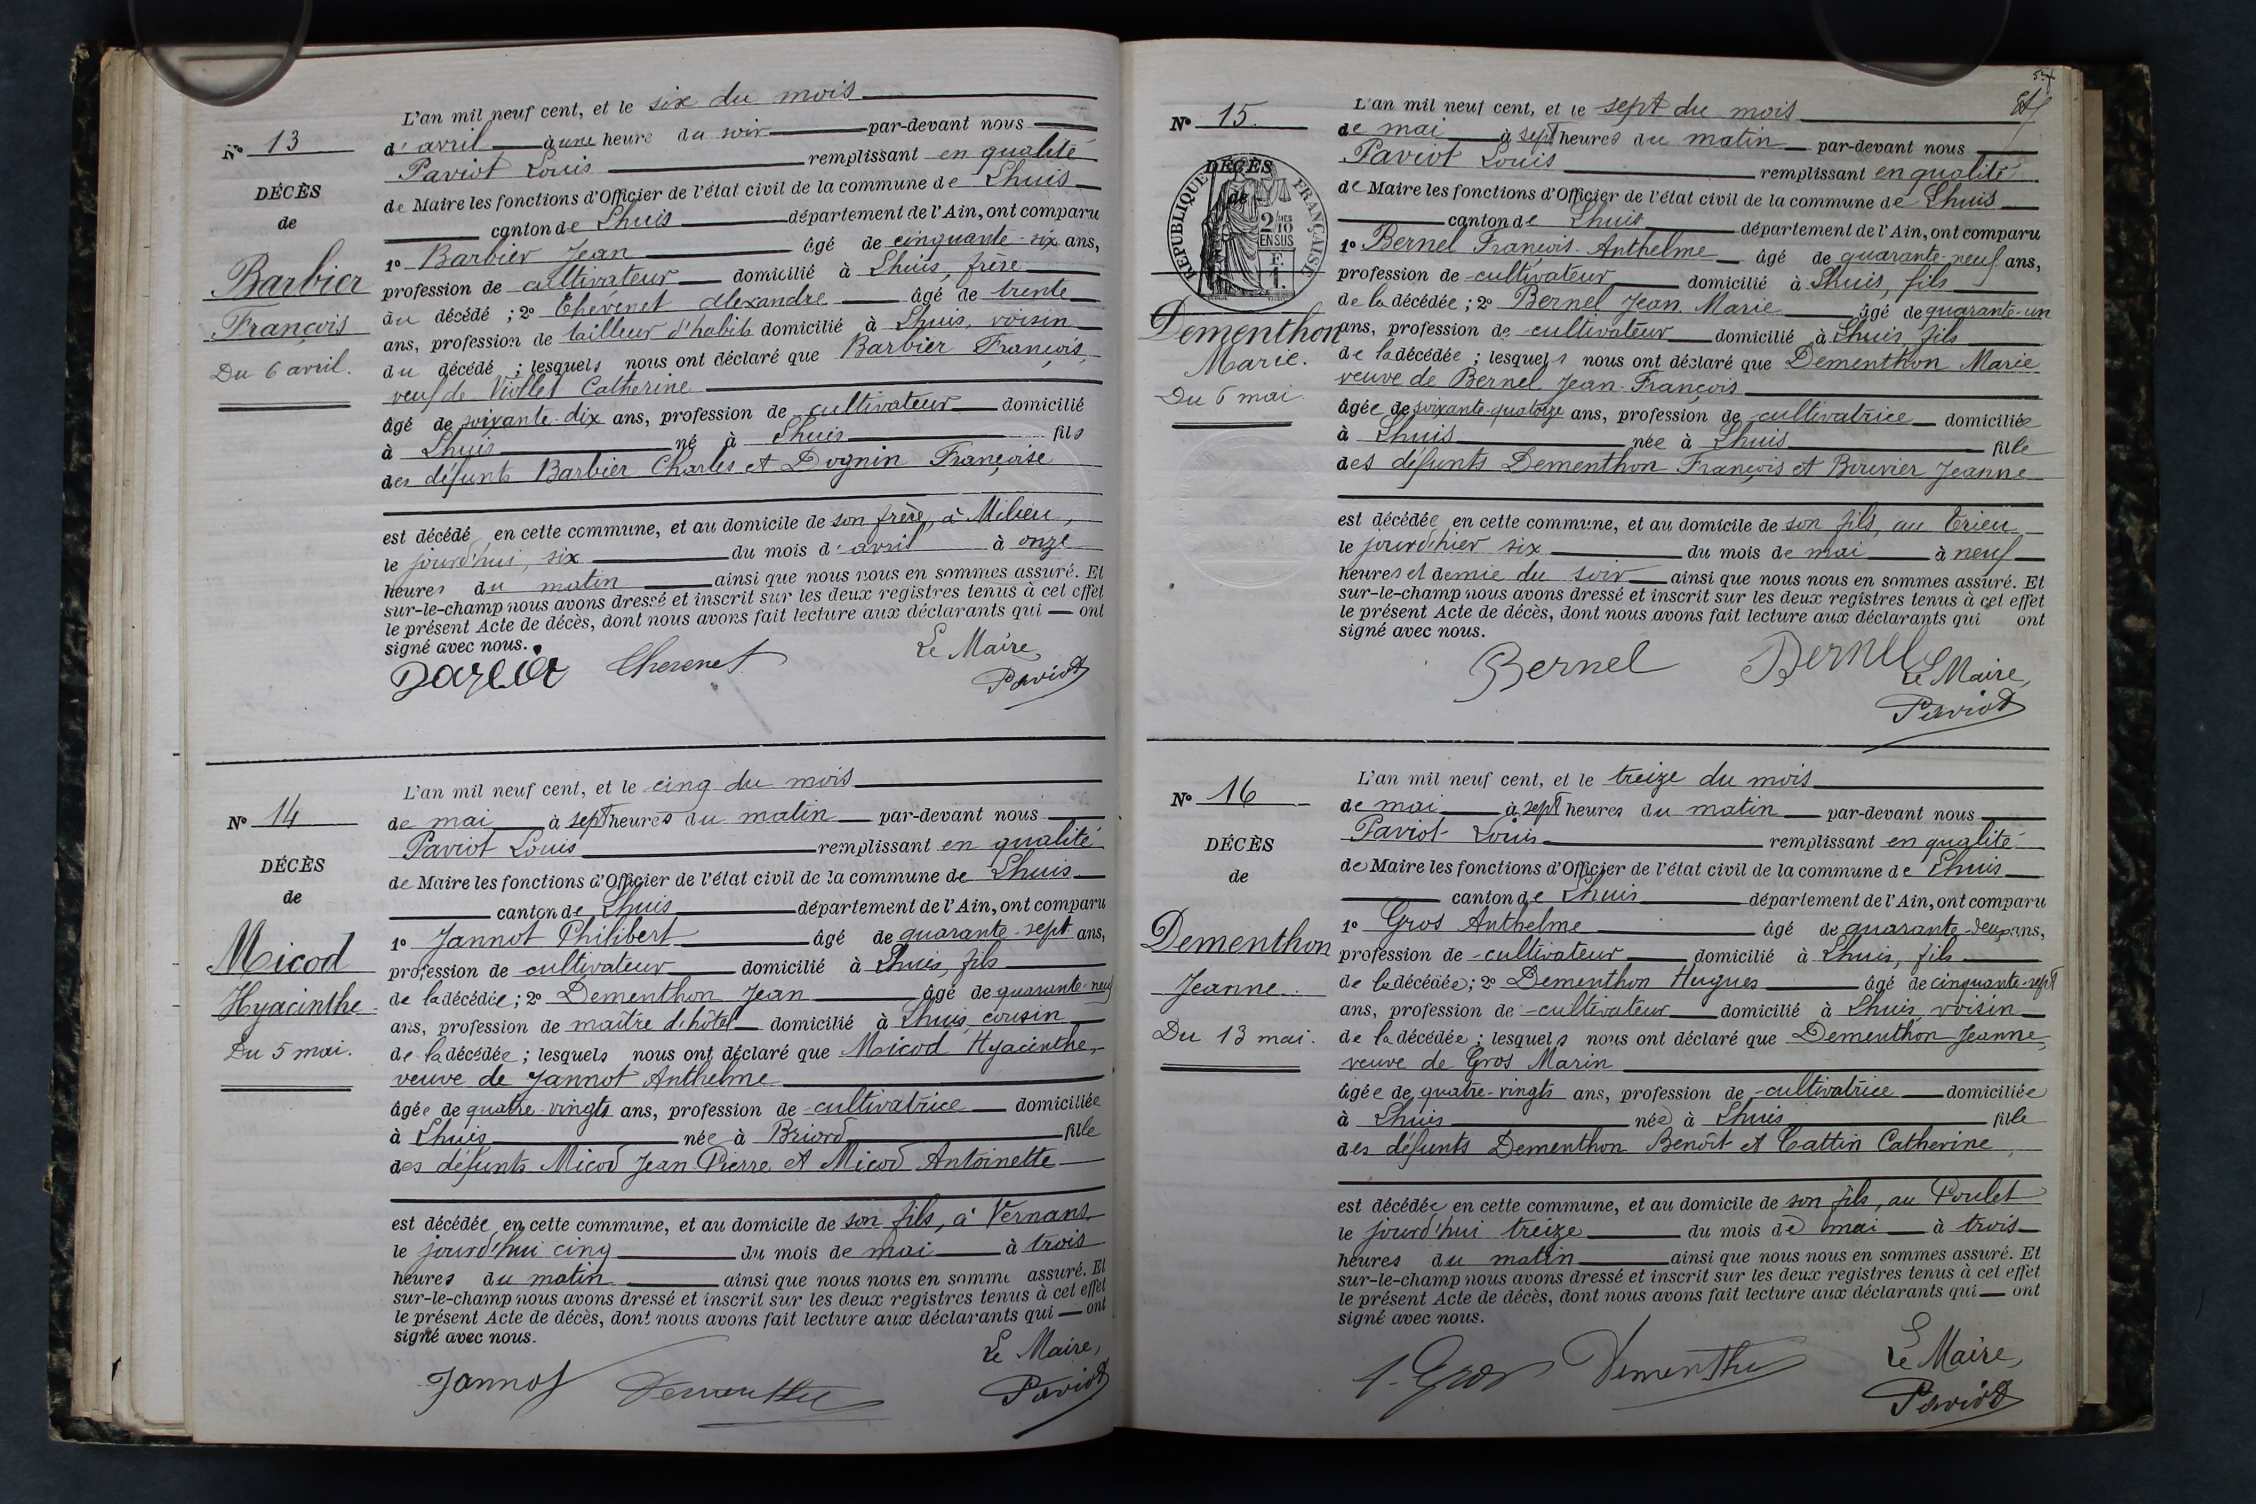 N° 13
DÉCÈS
de
Barbier
François
Du 6 avril.
L'an mil neuf cent, et le six du mois
d'avril à une heure du soir par-devant nous
Paviot Louis remplissant en qualité
de Maire les fonctions d'Officier de l'état civil de la commune de Lhuis
canton de Lhuis département de l'Ain, ont comparu
1° Barbier Jean âgé de cinquante-six ans,
profession de cultivateur domicilié à Lhuis, frère
du décédé ; 2° Chevenet Alexandre âgé de trente
ans, profession de tailleur d'habits domicilié à Lhuis, voisin
du décédé ; lesquels nous ont déclaré que Barbier François,
veuf de Viollet Catherine
âgé de soixante-dix ans, profession de cultivateur domicilié
à Lhuis né à Lhuis fils
des défunts Barbier Charles et Dognin Françoise
est décédé en cette commune, et au domicile de son frère, à Milieu,
le jourd'hui, six du mois d'avril à onze
heures du matin ainsi que nous nous en sommes assuré. Et
sur-le-champ nous avons dressé et inscrit sur les deux registres tenus à cet effet
le présent Acte de décès, dont nous avons fait lecture aux déclarants qui ont
signé avec nous.
Chevenet Le Maire,
Paviot
N° 14
DÉCÈS
de
Micod
Hyacinthe
Du 5 mai.
L'an mil neuf cent, et le cinq du mois
de mai à sept heures du matin par-devant nous
Paviot Louis remplissant en qualité
de Maire les fonctions d'Officier de l'état civil de la commune de Lhuis
canton de Lhuis département de l'Ain, ont comparu
1° Jannot Philibert âgé de quarante-sept ans,
profession de cultivateur domicilié à Lhuis, fils
de la décédée ; 2° Dementhon Jean âgé de quarante-neuf
ans, profession de maître d'hôtel domicilié à Lhuis, cousin
de la décédée ; lesquels nous ont déclaré que Micod Hyacinthe,
veuve de Jannot Anthelme
âgée de quatre-vingts ans, profession de cultivatrice domiciliée
à Lhuis née à Briord fille
des défunts Micod Jean Pierre et Micod Antoinette
est décédée en cette commune, et au domicile de son fils, à Vernans
le jourd'hui cinq du mois de mai à trois
heures du matin ainsi que nous nous en somme assuré. Et
sur-le-champ nous avons dressé et inscrit sur les deux registres tenus à cet effet
le présent Acte de décès, dont nous avons fait lecture aux déclarants qui ont
signé avec nous.
Le Maire,
Jannot Dementhon Paviot
N° 15.
DÉCÈS
de
RÉPUBLIQUE FRANÇAISE
2/10 EN SUS
F. 1.
Dementhon
Marie.
Du 6 mai.
L'an mil neuf cent, et le sept du mois
de mai à sept heures du matin par-devant nous
Paviot Louis remplissant en qualité
de Maire les fonctions d'Officier de l'état civil de la commune de Lhuis
canton de Lhuis département de l'Ain, ont comparu
1° Bernel François-Anthelme âgé de quarante-neuf ans,
profession de cultivateur domicilié à Lhuis, fils
de la décédée ; 2° Bernel Jean Marie âgé de quarante-un
ans, profession de cultivateur domicilié à Lhuis, fils
de la décédée ; lesquels nous ont déclaré que Dementhon Marie
veuve de Bernel Jean-François
âgée de soixante-quatorze ans, profession de cultivatrice domiciliée
à Lhuis née à Lhuis fille
des défunts Dementhon François et Bouvier Jeanne
est décédée en cette commune, et au domicile de son fils, au Crieu
le jour d'hier six du mois de mai à neuf
heures et demie du soir ainsi que nous nous en sommes assuré. Et
sur-le-champ nous avons dressé et inscrit sur les deux registres tenus à cet effet
le présent Acte de décès, dont nous avons fait lecture aux déclarants qui ont
signé avec nous.
Bernel Bernel Le Maire,
Paviot
N° 16
DÉCÈS
de
Dementhon
Jeanne.
Du 13 mai.
L'an mil neuf cent, et le treize du mois
de mai à sept heures du matin par-devant nous
Paviot Louis remplissant en qualité
de Maire les fonctions d'Officier de l'état civil de la commune de Lhuis
canton de Lhuis département de l'Ain, ont comparu
1° Gros Anthelme âgé de quarante-deux ans,
profession de cultivateur domicilié à Lhuis, fils
de la décédée ; 2° Dementhon Hugues âgé de cinquante-sept
ans, profession de cultivateur domicilié à Lhuis, voisin
de la décédée ; lesquels nous ont déclaré que Dementhon Jeanne,
veuve de Gros Marin
âgée de quatre-vingts ans, profession de cultivatrice domiciliée
à Lhuis née à Lhuis fille
des défunts Dementhon Benoît et Cattin Catherine,
est décédée en cette commune, et au domicile de son fils, au Poulet
le jourd'hui treize du mois de mai à trois
heures du matin ainsi que nous nous en sommes assuré. Et
sur-le-champ nous avons dressé et inscrit sur les deux registres tenus à cet effet
le présent Acte de décès, dont nous avons fait lecture aux déclarants qui ont
signé avec nous.
A. Gros Dementhon Le Maire,
Paviot